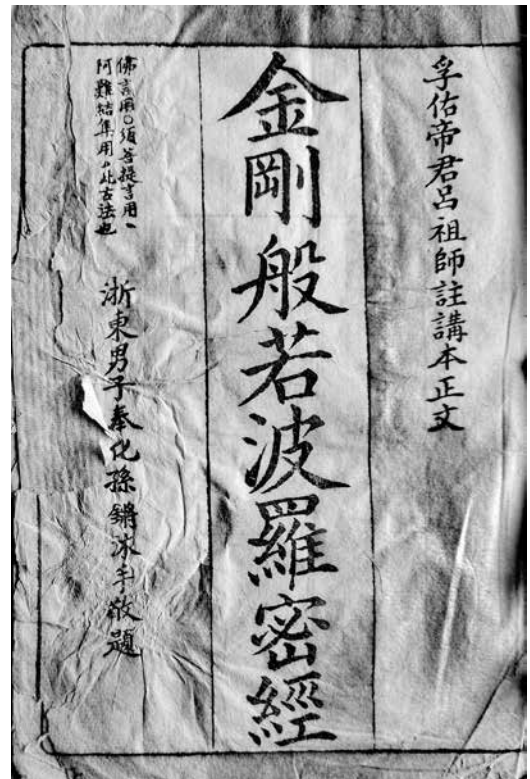 孚佑帝君呂祖師註講本正文
金剛般若波羅密經
佛言用○須菩提言用丶
阿難結集用㇒此古法也
浙東男子奉化孫鏘沐手敬題